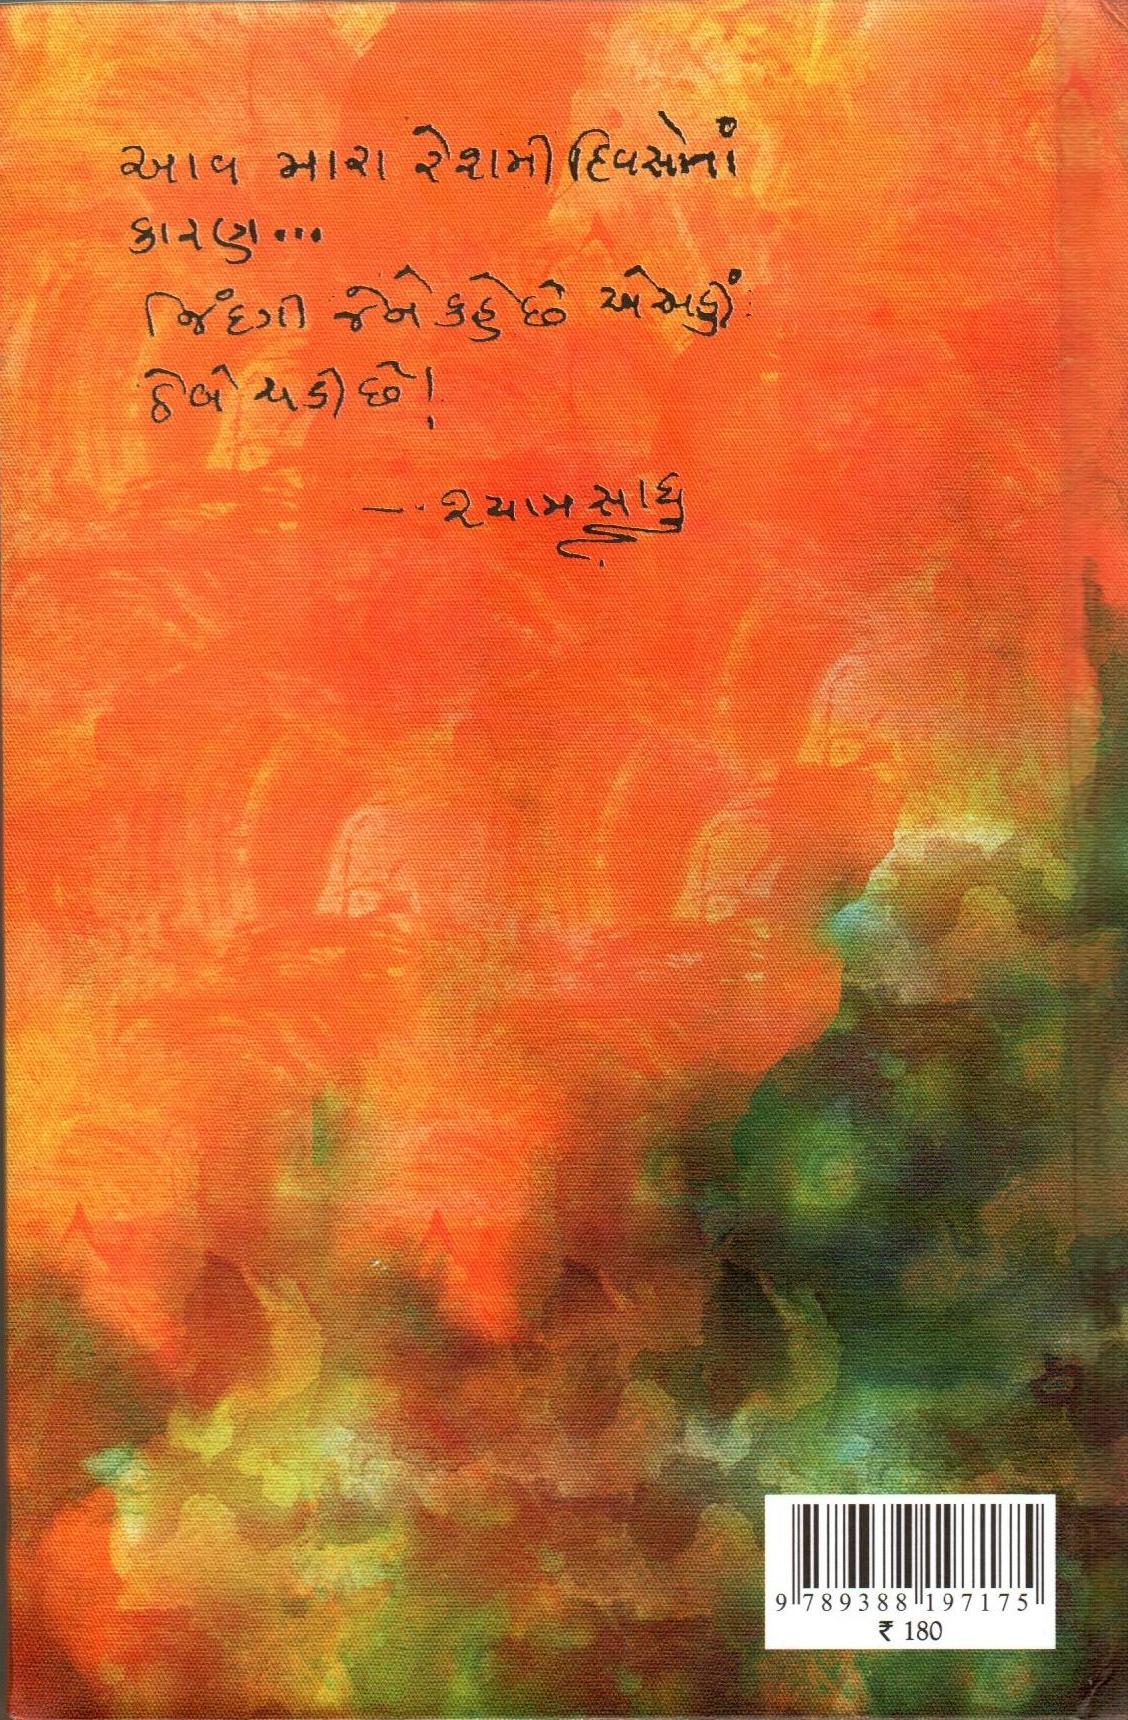 આવ મારા રેશમી દિવસોનાં
કારણ...
જિંદગી જેને કહે છે એ અહીં
ઠેબે ચડી છે!
- શ્યામ સાધુ
9 789388 197175
₹ 180